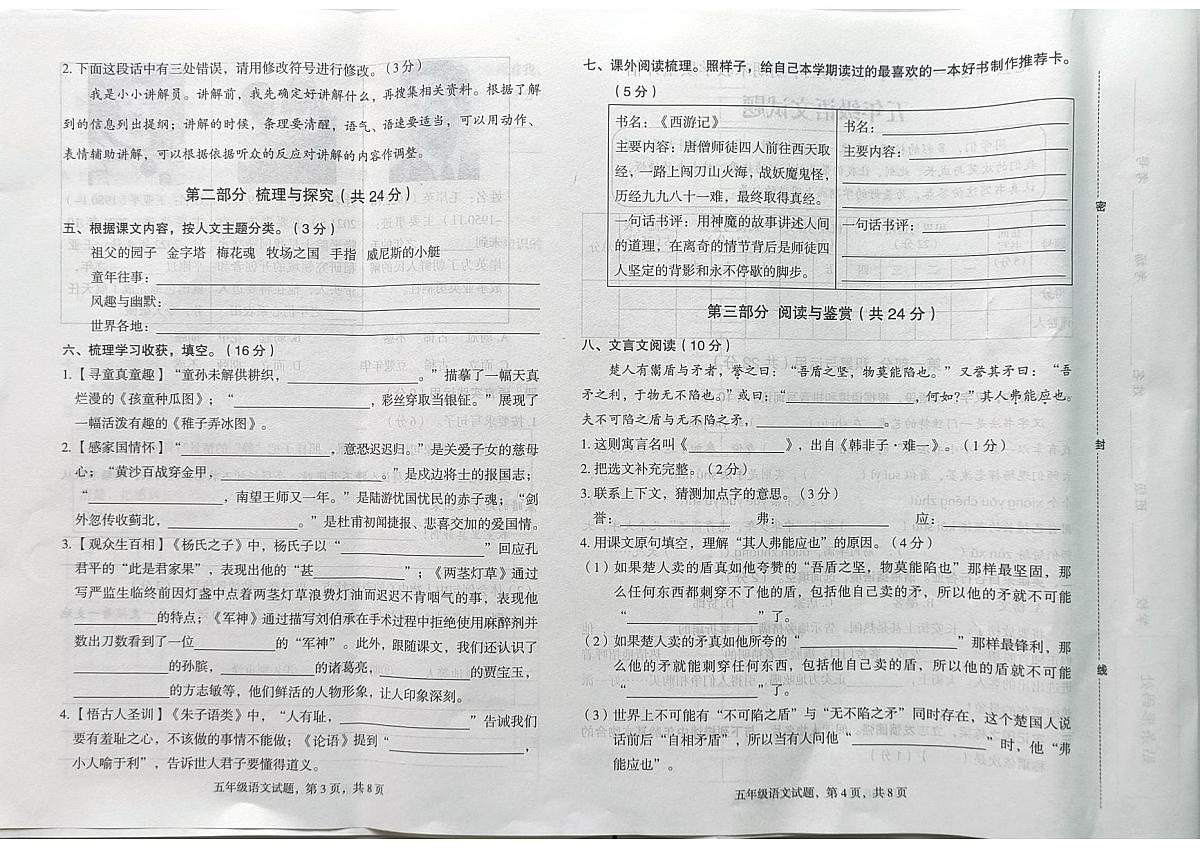 2. 下面这段话中有三处错误，请用修改符号进行修改。（3分）
我是小小讲解员。讲解前，我先确定好讲解什么，再搜集相关资料。根据了解
到的信息列出提纲；讲解的时候，条理要清醒，语气、语速要适当，可以用动作、
表情辅助讲解，可以根据依据听众的反应对讲解的内容作调整。
第二部分 梳理与探究（共24分）
五、根据课文内容，按人文主题分类。（3分）
祖父的园子 金字塔 梅花魂 牧场之国 手指 威尼斯的小艇
童年往事：
风趣与幽默：
世界各地：
六、梳理学习收获，填空。（16分）
1.【寻童真童趣】“童孙未解供耕织，____________。”描摹了一幅天真
烂漫的《孩童种瓜图》；“____________，彩丝穿取当银钲。”展现了
一幅活泼有趣的《稚子弄冰图》。
2.【感家国情怀】“____________，意恐迟迟归。”是关爱子女的慈母
心；“黄沙百战穿金甲，____________。”是戍边将士的报国志；
“____________，南望王师又一年。”是陆游忧国忧民的赤子魂；“剑
外忽传收蓟北，____________。”是杜甫初闻捷报、悲喜交加的爱国情。
3.【观众生百相】《杨氏之子》中，杨氏子以“____________”回应孔
君平的“此是君家果”，表现出他的“甚____________”；《两茎灯草》通过
写严监生临终前因灯盏中点着两茎灯草浪费灯油而迟迟不肯咽气的事，表现他
____________的特点；《军神》通过描写刘伯承在手术过程中拒绝使用麻醉剂并
数出刀数看到了一位____________的“军神”。此外，跟随课文，我们还认识了
____________的孙膑，____________的诸葛亮，____________的贾宝玉，
____________的方志敏等，他们鲜活的人物形象，让人印象深刻。
4.【悟古人圣训】《朱子语类》中，“人有耻，____________”告诫我们
要有羞耻之心，不该做的事情不能做；《论语》提到“____________，
小人喻于利”，告诉世人君子要懂得道义。
五年级语文试题，第3页，共8页
七、课外阅读梳理。照样子，给自己本学期读过的最喜欢的一本好书制作推荐卡。
（5分）
书名：《西游记》
主要内容：唐僧师徒四人前往西天取
经，一路上闯刀山火海，战妖魔鬼怪，
历经九九八十一难，最终取得真经。
一句话书评：用神魔的故事讲述人间
的道理，在离奇的情节背后是师徒四
人坚定的背影和永不停歇的脚步。
书名：
主要内容：
一句话书评：
第三部分 阅读与鉴赏（共24分）
八、文言文阅读（10分）
楚人有鬻盾与矛者，誉之曰：“吾盾之坚，物莫能陷也。”又誉其矛曰：“吾
矛之利，于物无不陷也。”或曰：“____________，何如？”其人弗能应也。
夫不可陷之盾与无不陷之矛，____________。
1.这则寓言名叫《____________》，出自《韩非子·难一》。（1分）
2.把选文补充完整。（2分）
3.联系上下文，猜测加点字的意思。（3分）
誉：____________ 弗：____________ 应：____________
4.用课文原句填空，理解“其人弗能应也”的原因。（4分）
（1）如果楚人卖的盾真如他夸赞的“吾盾之坚，物莫能陷也”那样最坚固，那
么任何东西都刺穿不了他的盾，包括他自己卖的矛，所以他的矛就不可能
“____________”了。
（2）如果楚人卖的矛真如他所夸的“____________”那样最锋利，那
么他的矛就能刺穿任何东西，包括他自己卖的盾，所以他的盾就不可能
“____________”了。
（3）世界上不可能有“不可陷之盾”与“无不陷之矛”同时存在，这个楚国人说
话前后“自相矛盾”，所以当有人问他“____________”时，他“弗
能应也”。
五年级语文试题，第4页，共8页
密
封
线